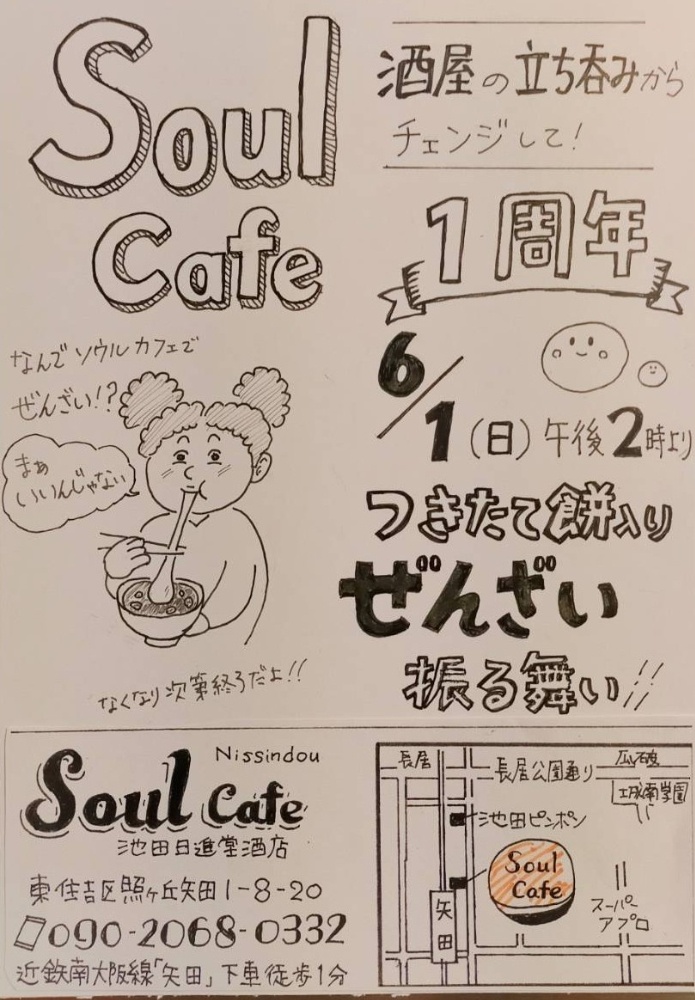 Soul
Cafe
酒屋の立ち呑みから
チェンジして!
1周年
6/1(日)午後2時より
つきたて餅入り
ぜんざい
振る舞い!!
なんでソウルカフェで
ぜんざい!?
まぁ
いいんじゃない
なくなり次第終了だよ!!
Soul Cafe
Nissindou
池田日進堂酒店
東住吉区照ヶ丘矢田1-8-20
090-2068-0332
近鉄南大阪線「矢田」下車徒歩1分
長居
長居公園通り
瓜破
城南学園
池田ピンポン
Soul
Cafe
矢田
スーパー
アプロ